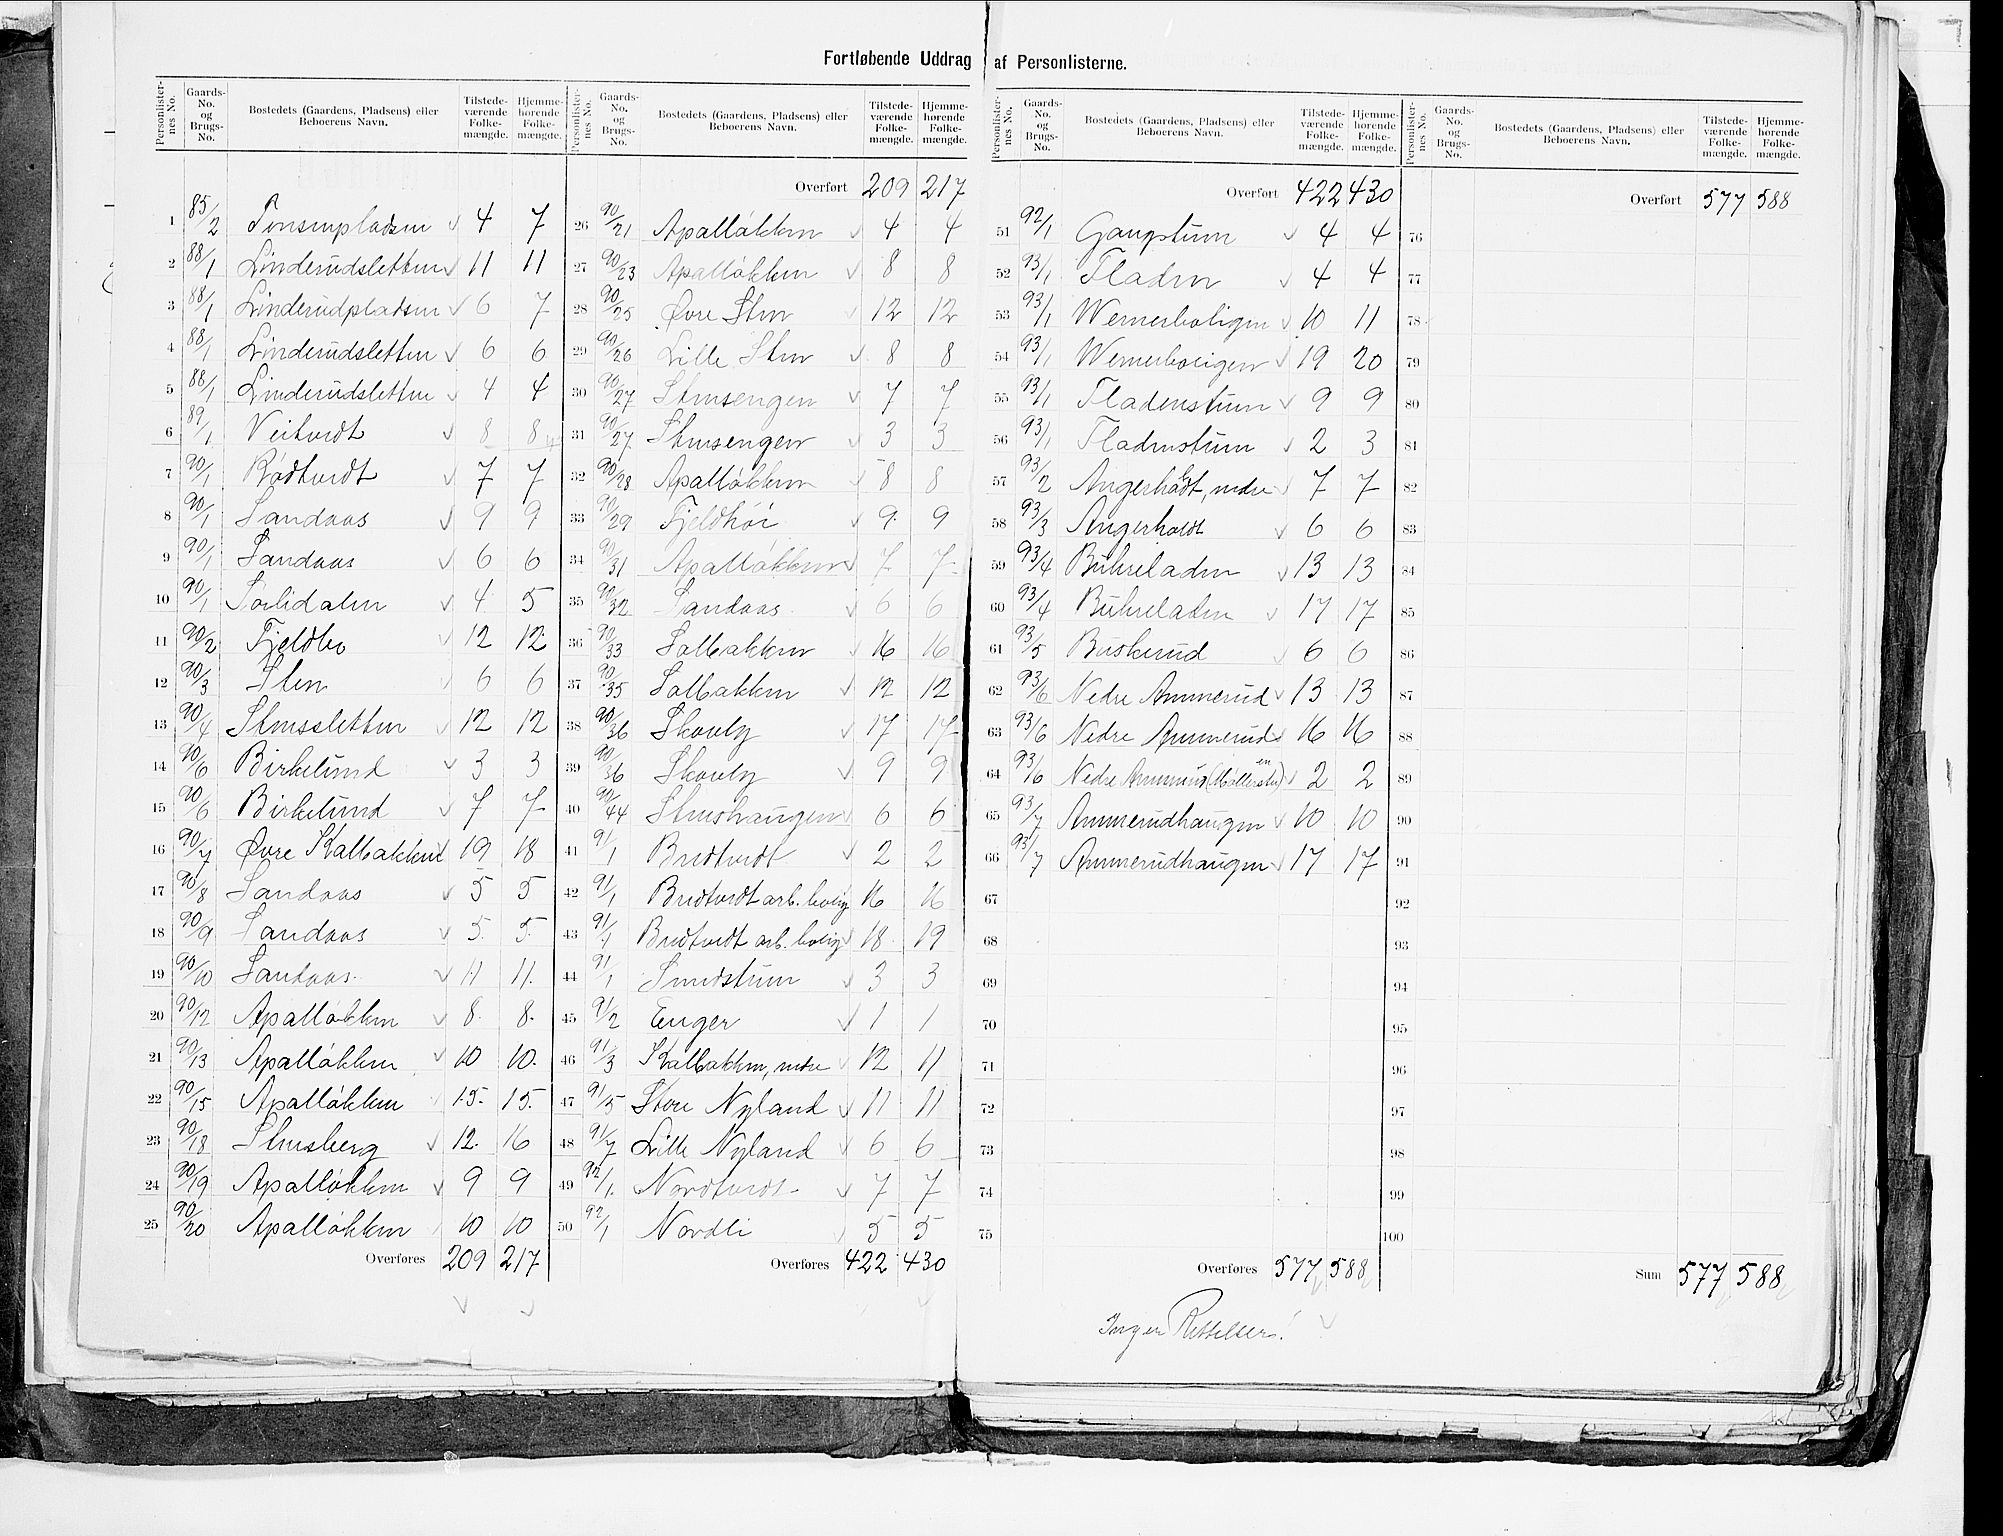 Fortløbende Uddrag af Personlisternes.
Personlister-nes No. Gaards-No. og Brugs-No. Bostedets (Gaardens, Pladsens) eller Beboerens Navn. Tilstede-værende Folke-mængde. Hjemme-hørende Folke-mængde.
1 85/2 Tonsenpladsen 4 7
2 88/1 Linderudsletten 11 11
3 88/1 Linderudpladsen 6 7
4 88/1 Linderudsletten 6 6
5 88/1 Linderudsletten 4 4
6 89/1 Veitvedt 8 8
7 90/1 Rødtvedt 7 7
8 90/1 Sandaas 9 9
9 90/1 Sandaas 6 6
10 90/1 Sørlidalen 4 5
11 90/2 Fjeldbo 12 12
12 90/3 Sten 6 6
13 90/4 Stensletten 12 12
14 90/6 Birkelund 3 3
15 90/6 Birkelund 7 7
16 90/7 Øvre Kalbakken 19 18
17 90/8 Sandaas 5 5
18 90/9 Sandaas 5 5
19 90/10 Sandaas 11 11
20 90/12 Apalløkken 8 8
21 90/13 Apalløkken 10 10
22 90/15 Apalløkken 15 15
23 90/18 Stensberg 12 16
24 90/19 Apalløkken 9 9
25 90/20 Apalløkken 10 10
Overføres 209 217
Personlister-nes No. Gaards-No. og Brugs-No. Bostedets (Gaardens, Pladsens) eller Beboerens Navn. Tilstede-værende Folke-mængde. Hjemme-hørende Folke-mængde.
Overført 209 217
26 90/21 Apalløkken 4 4
27 90/23 Apalløkken 8 8
28 90/25 Øvre Sten 12 12
29 90/26 Lille Sten 8 8
30 90/27 Stensengen 7 7
31 90/27 Stensengen 3 3
32 90/28 Apalløkken 8 8
33 90/29 Fjeldhöi 9 9
34 90/31 Apalløkken 7 7
35 90/32 Sandaas 6 6
36 90/33 Solbakken 16 16
37 90/35 Solbakken 12 12
38 90/36 Skovly 17 17
39 90/36 Skovly 9 9
40 90/44 Stenshaugen 6 6
41 91/1 Bredtvedt 2 2
42 91/1 Bredtvedt arb. bolig 16 16
43 91/1 Bredtvedt arb. bolig 18 19
44 91/1 Smedstuen 3 3
45 91/2 Enger 1 1
46 91/3 Kalbakken, nedre 12 11
47 91/5 Store Nyland 11 11
48 91/7 Lille Nyland 6 6
49 92/1 Nordtvedt 7 7
50 92/1 Nordli 5 5
Overføres 422 430
Personlister-nes No. Gaards-No. og Brugs-No. Bostedets (Gaardens, Pladsens) eller Beboerens Navn. Tilstede-værende Folke-mængde. Hjemme-hørende Folke-mængde.
Overført 422 430
51 92/1 Gaupstuen 4 4
52 93/1 Fladen 4 4
53 93/1 Wernerboligen 10 11
54 93/1 Wernerboligen 19 20
55 93/1 Fladenstuen 9 9
56 93/1 Fladenstuen 2 3
57 93/2 Angerholdt, nedre 7 7
58 93/3 Angerholdt 6 6
59 93/4 Buhreladen 13 13
60 93/4 Buhreladen 17 17
61 93/5 Buskerud 6 6
62 93/6 Nedre Ammerud 13 13
63 93/6 Nedre Ammerud 16 16
64 93/6 Nedre Ammerud (Møllerstuen) 2 2
65 93/7 Ammerudhaugen 10 10
66 93/7 Ammerudhaugen 17 17
67
68
69
70
71
72
73
74
75
Overføres 577 588
Personlister-nes No. Gaards-No. og Brugs-No. Bostedets (Gaardens, Pladsens) eller Beboerens Navn. Tilstede-værende Folke-mængde. Hjemme-hørende Folke-mængde.
Overført 577 588
76
77
78
79
80
81
82
83
84
85
86
87
88
89
90
91
92
93
94
95
96
97
98
99
100
Sum 577 588
Ingen Rettelser!